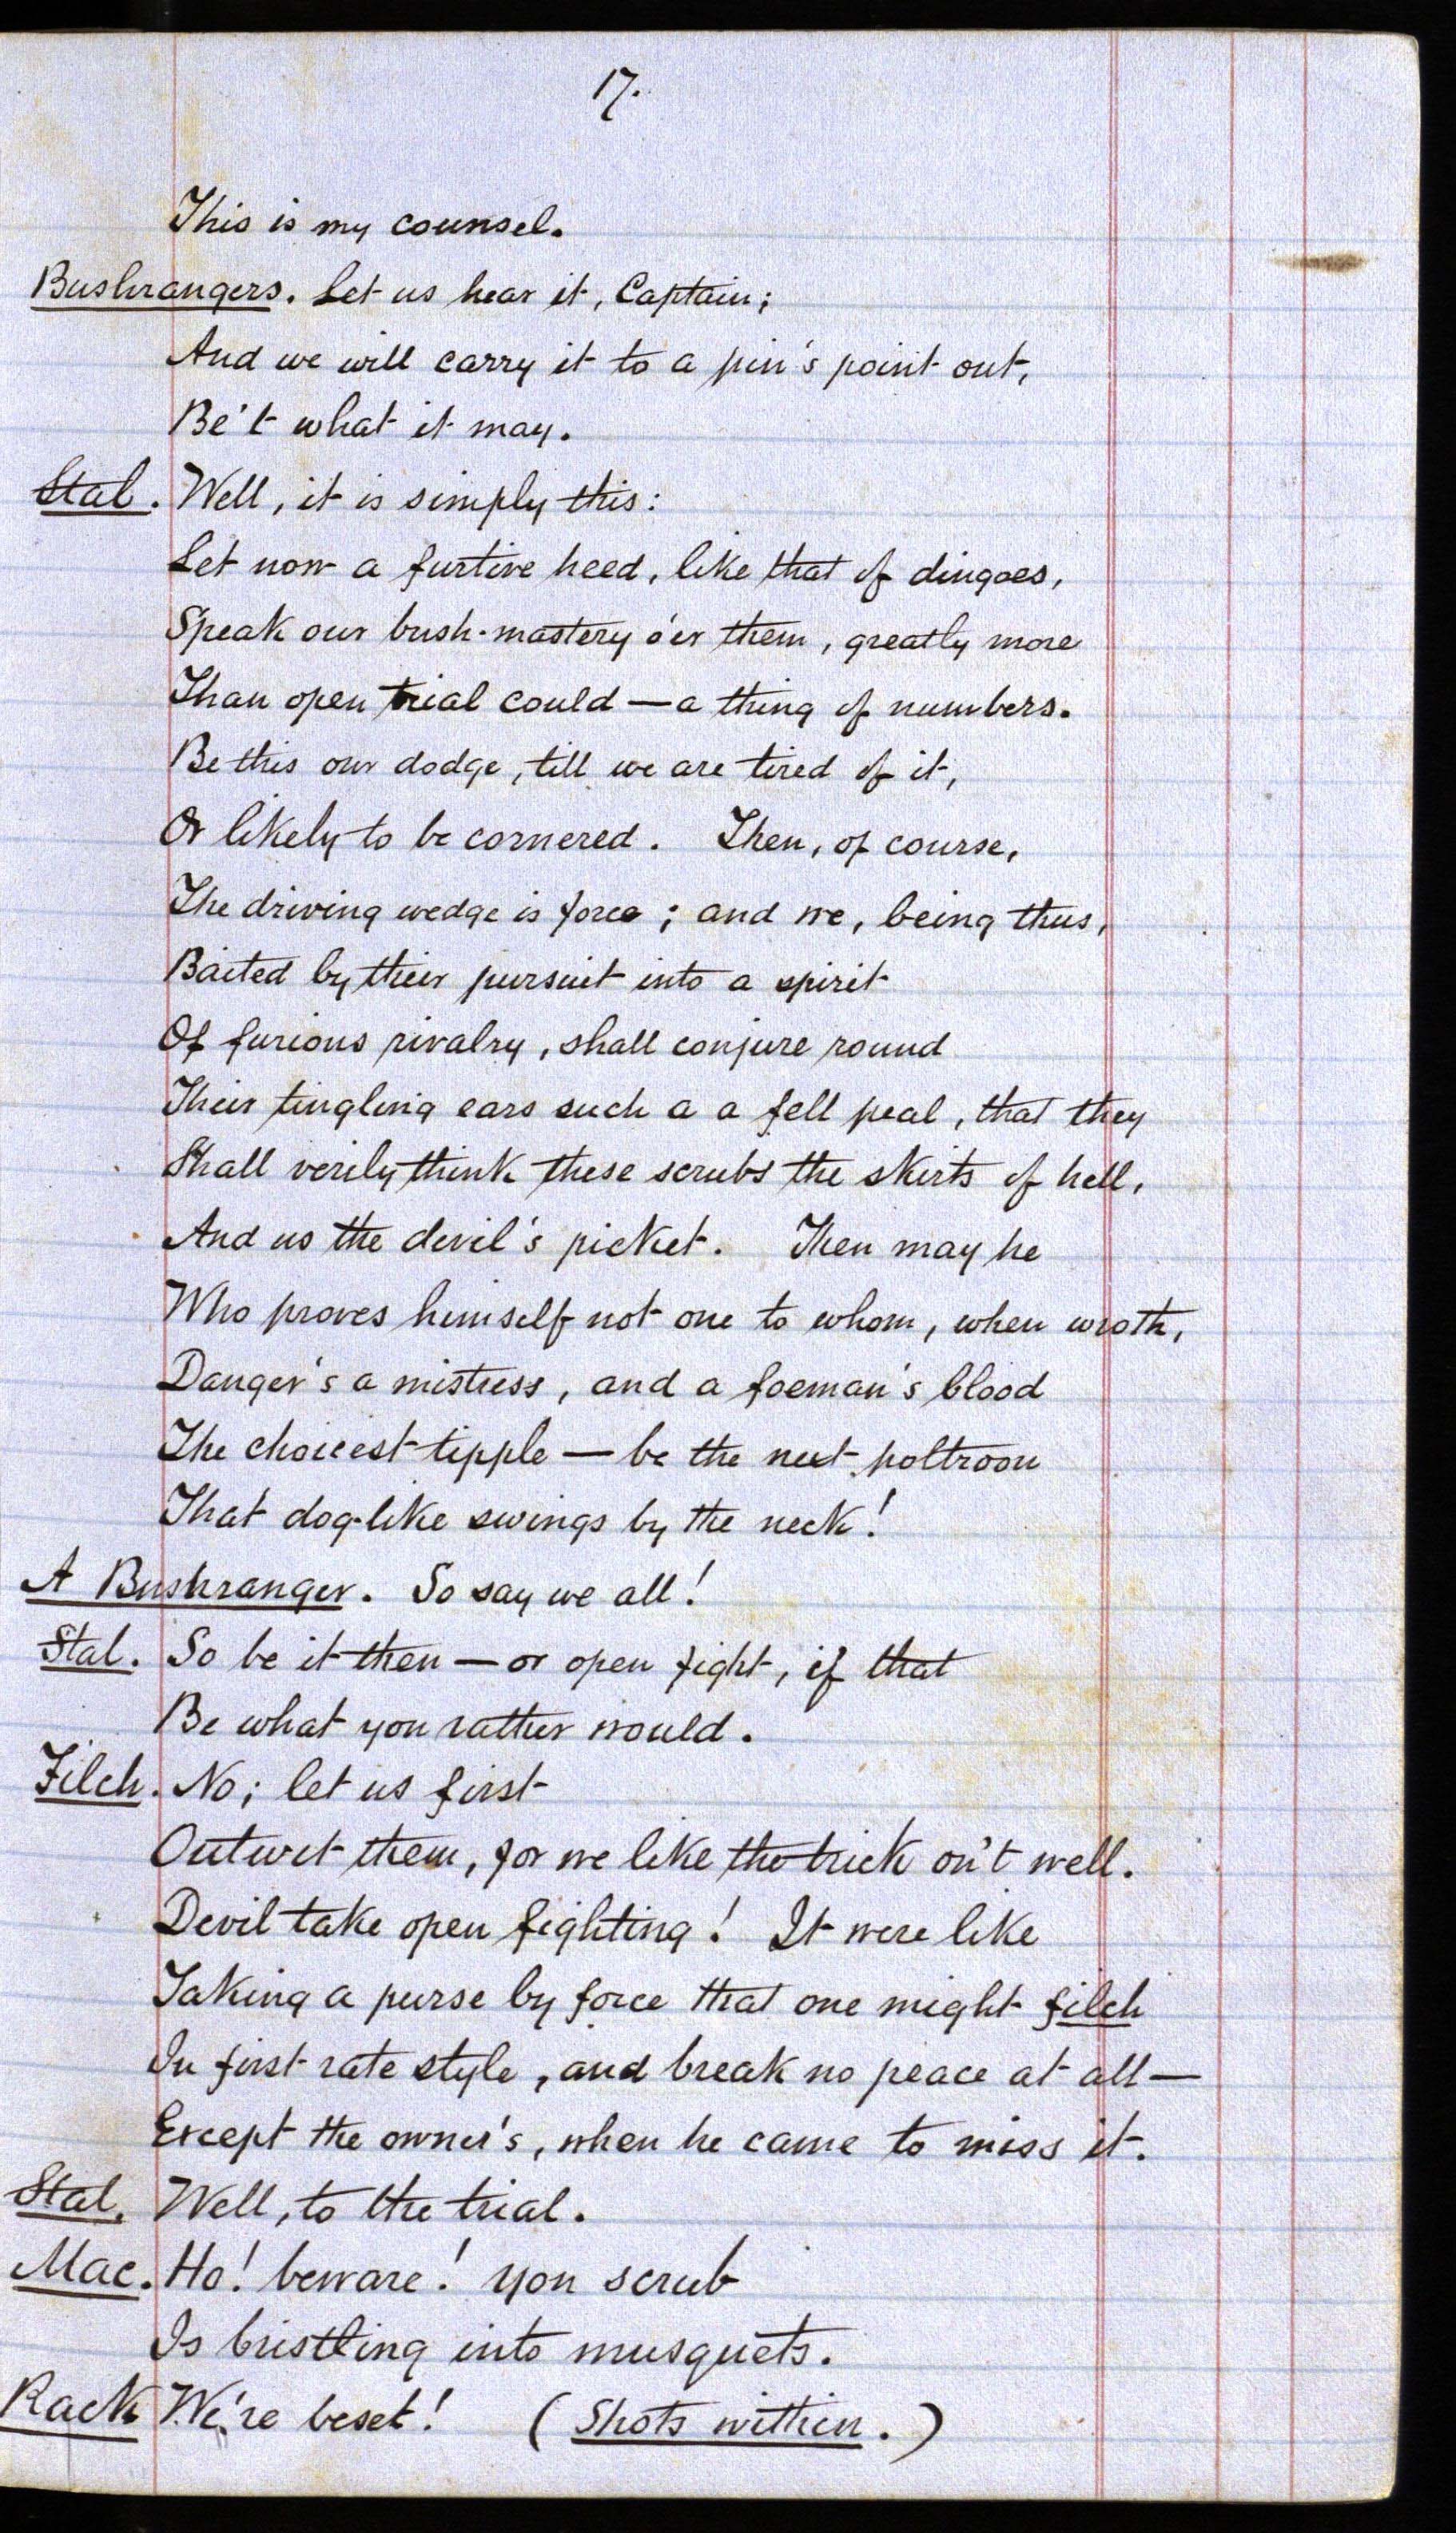 17.
This is my counsel.
Bushrangers. Let us hear it, Captain;
And we will carry it to a pin's point out,
Be't what it may.
Stal. Well, it is simply this:
Let now a furtive heed, like that of dingoes,
Speak our bush-mastery o'er them, greatly more
Than open trial could — a thing of numbers.
Be this our dodge, till we are tired of it,
Or likely to be cornered. Then, of course,
The driving wedge is force; and we, being thus,
Baited by their pursuit into a spirit
Of furious rivalry, shall conjure round
Their tingling ears such a a fell peal, that they
Shall verily think these scrubs the skirts of hell,
And us the devil's picket. Then may he
Who proves himself not one to whom, when wroth,
Danger's a mistress, and a foeman's blood
The choicest tipple — be the next poltroon
That dog-like swings by the neck!
A Bushranger. So say we all!
Stal. So be it then — or open fight, if that
Be what you rather would.
Filch. No; let us first
Outwit them, for we like the trick on't well.
Devil take open fighting! It were like
Taking a purse by force that one might filch
In first rate style, and break no peace at all —
Except the owner's, when he came to miss it.
Stal. Well, to the trial.
Mac. Ho! beware! yon scrub
Is bristling into musquets.
Rack We're beset! (Shots within.)